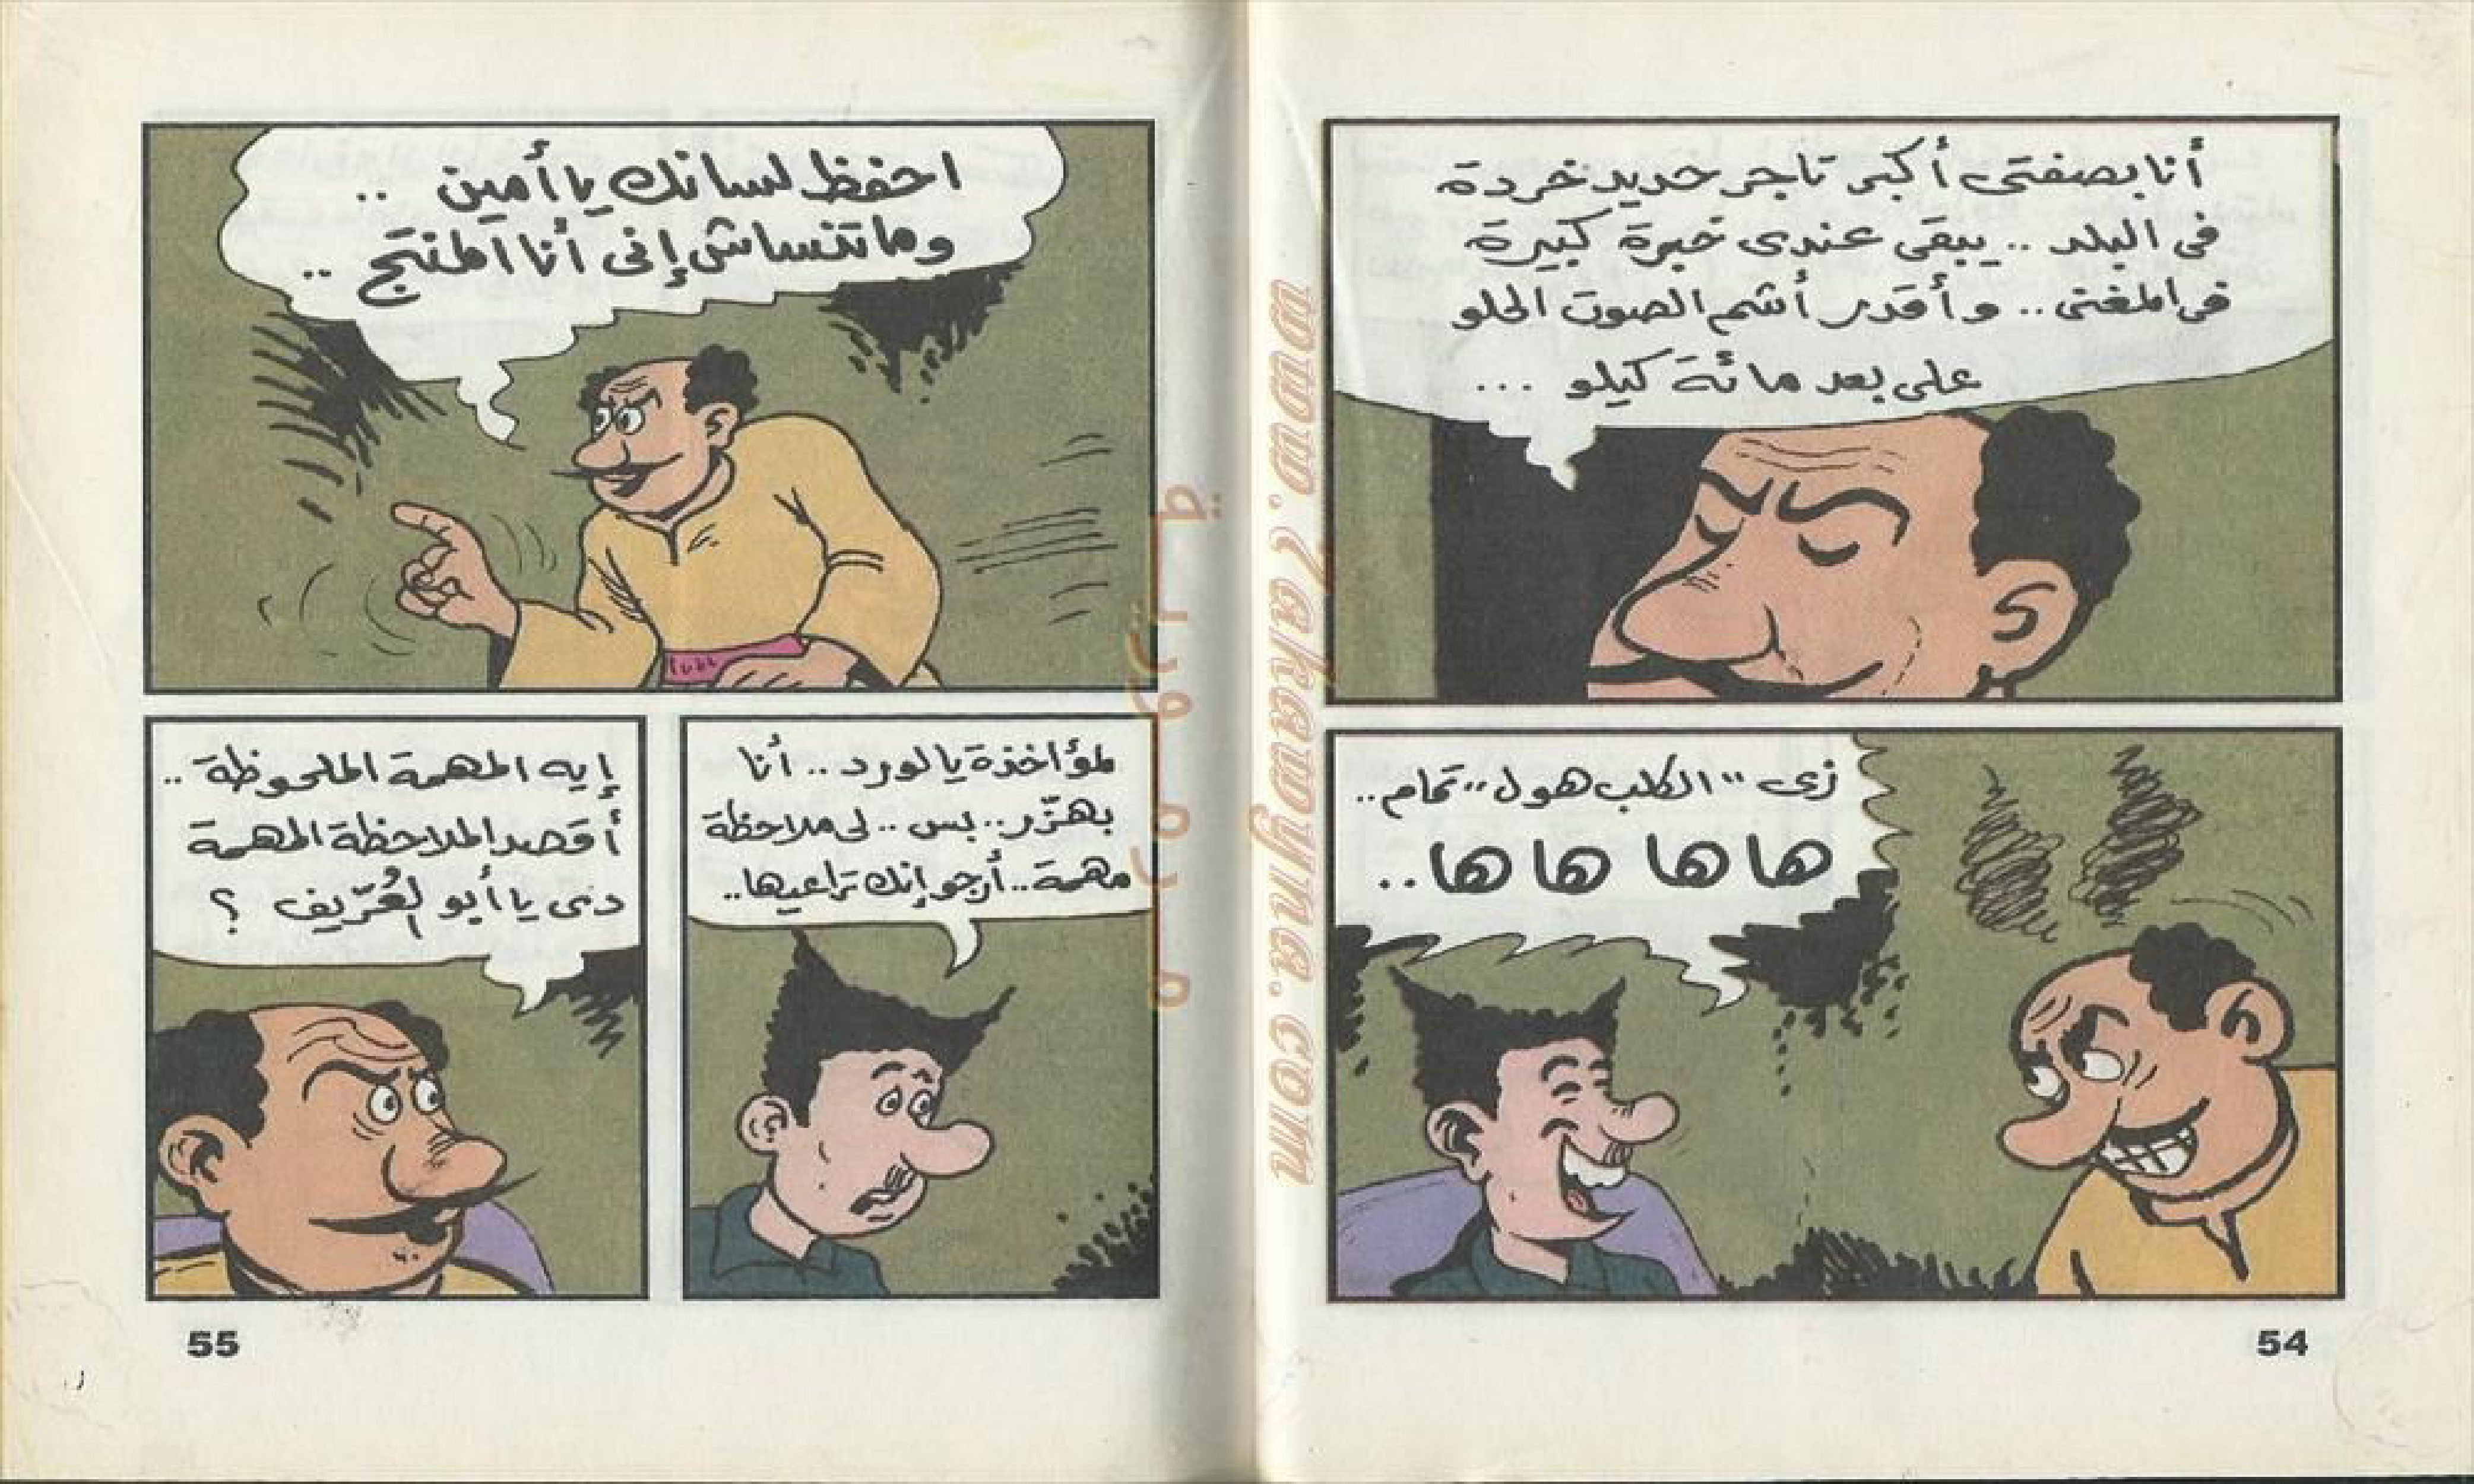 أنا بصفتى أكبر تاجر حديد خردة
فى البلد .. يبقى عندى خبرة كبيرة
فى المغنى .. وأقدر أشم الصوت الحلو
على بعد مائة كيلو ...
زى "الكلب هول" تمام ..
ها ها ها ها ..
54
احفظ لسانك يا أمين ..
وما تنساش إنى أنا المنتج ..
لمؤاخذة يا لورد .. أنا
بهزّر .. بس .. لى ملاحظة
مهمة .. أرجو إنك تراعيها ..
إيه المهمة الملحوظة ..
أقصد الملاحظة المهمة
دى يا أبو العُرّيف ؟
55
www.Zakawyna.com